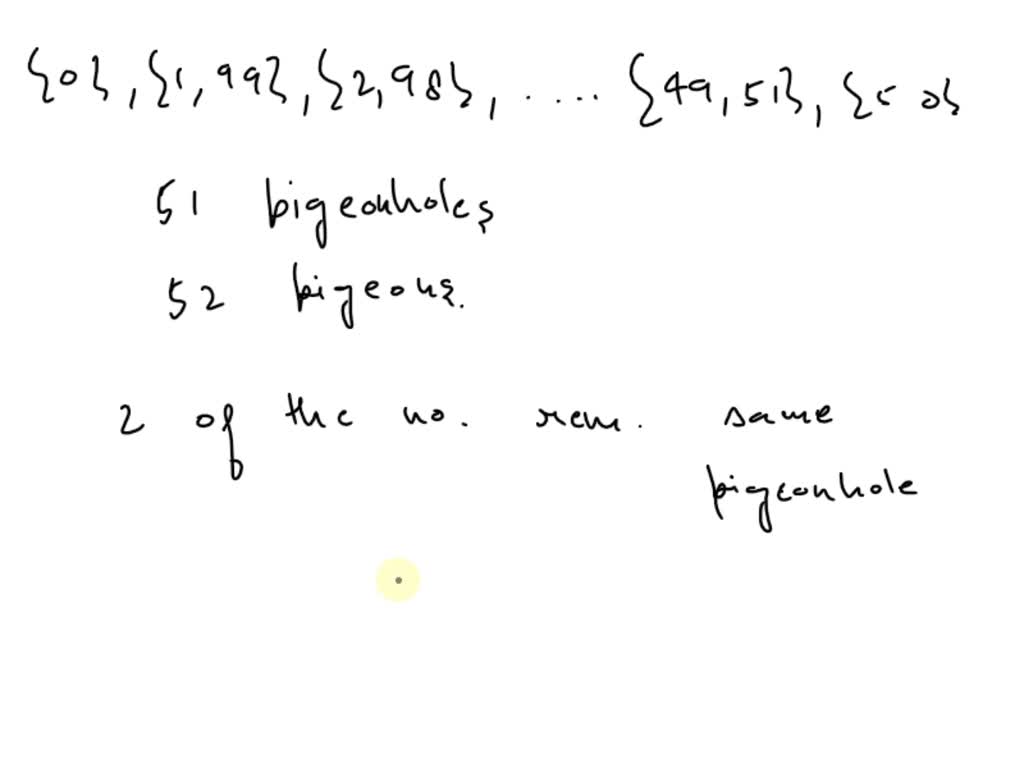 {0}, {1, 99}, {2, 98}, .... {49, 51}, {50}
51 pigeonholes
52 pigeons.
2 of the no. rem. same
pigeonhole